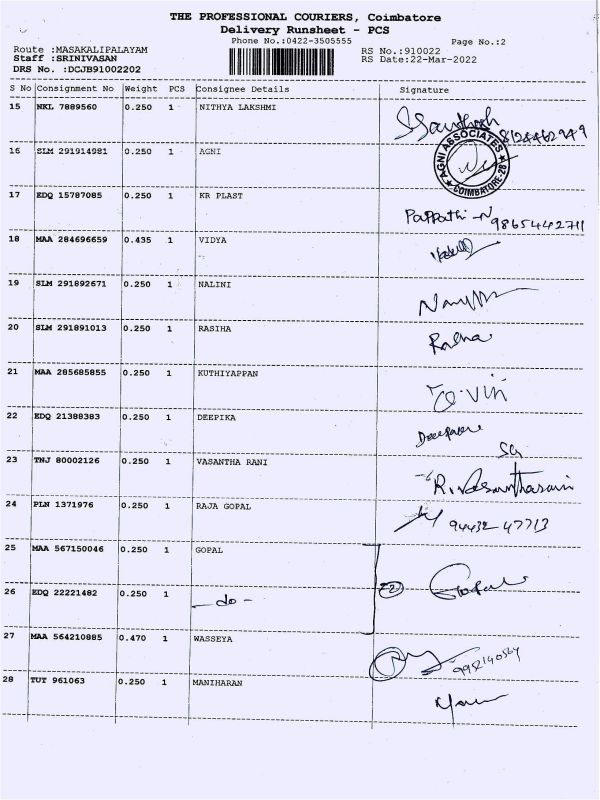 THE PROFESSIONAL COURIERS, Coimbatore
Delivery Runsheet - PCS
Phone No.:0422-3505555 Page No.:2
Route :MASAKALIPALAYAM RS No.:910022
Staff :SRINIVASAN RS Date:22-Mar-2022
DRS No. :DCJB91002202
S No Consignment No Weight PCS Consignee Details Signature
15 NKL 7889560 0.250 1 NITHYA LAKSHMI 8124462949
16 SLM 291914981 0.250 1 AGNI AGNI ASSOCIATES COIMBATORE-28
17 EDQ 15787085 0.250 1 KR PLAST Pappathi 9865442711
18 MAA 284696659 0.435 1 VIDYA
19 SLM 291892671 0.250 1 NALINI
20 SLM 291891013 0.250 1 RASIHA
21 MAA 285685855 0.250 1 KUTHIYAPPAN
22 EDQ 21388383 0.250 1 DEEPIKA
23 TNJ 80002126 0.250 1 VASANTHA RANI
24 PLN 1371976 0.250 1 RAJA GOPAL 94432-47713
25 MAA 567150046 0.250 1 GOPAL
26 EDQ 22221482 0.250 1 -do- 2 Gopal
27 MAA 564210885 0.470 1 WASSEYA
28 TUT 961063 0.250 1 MANIHARAN